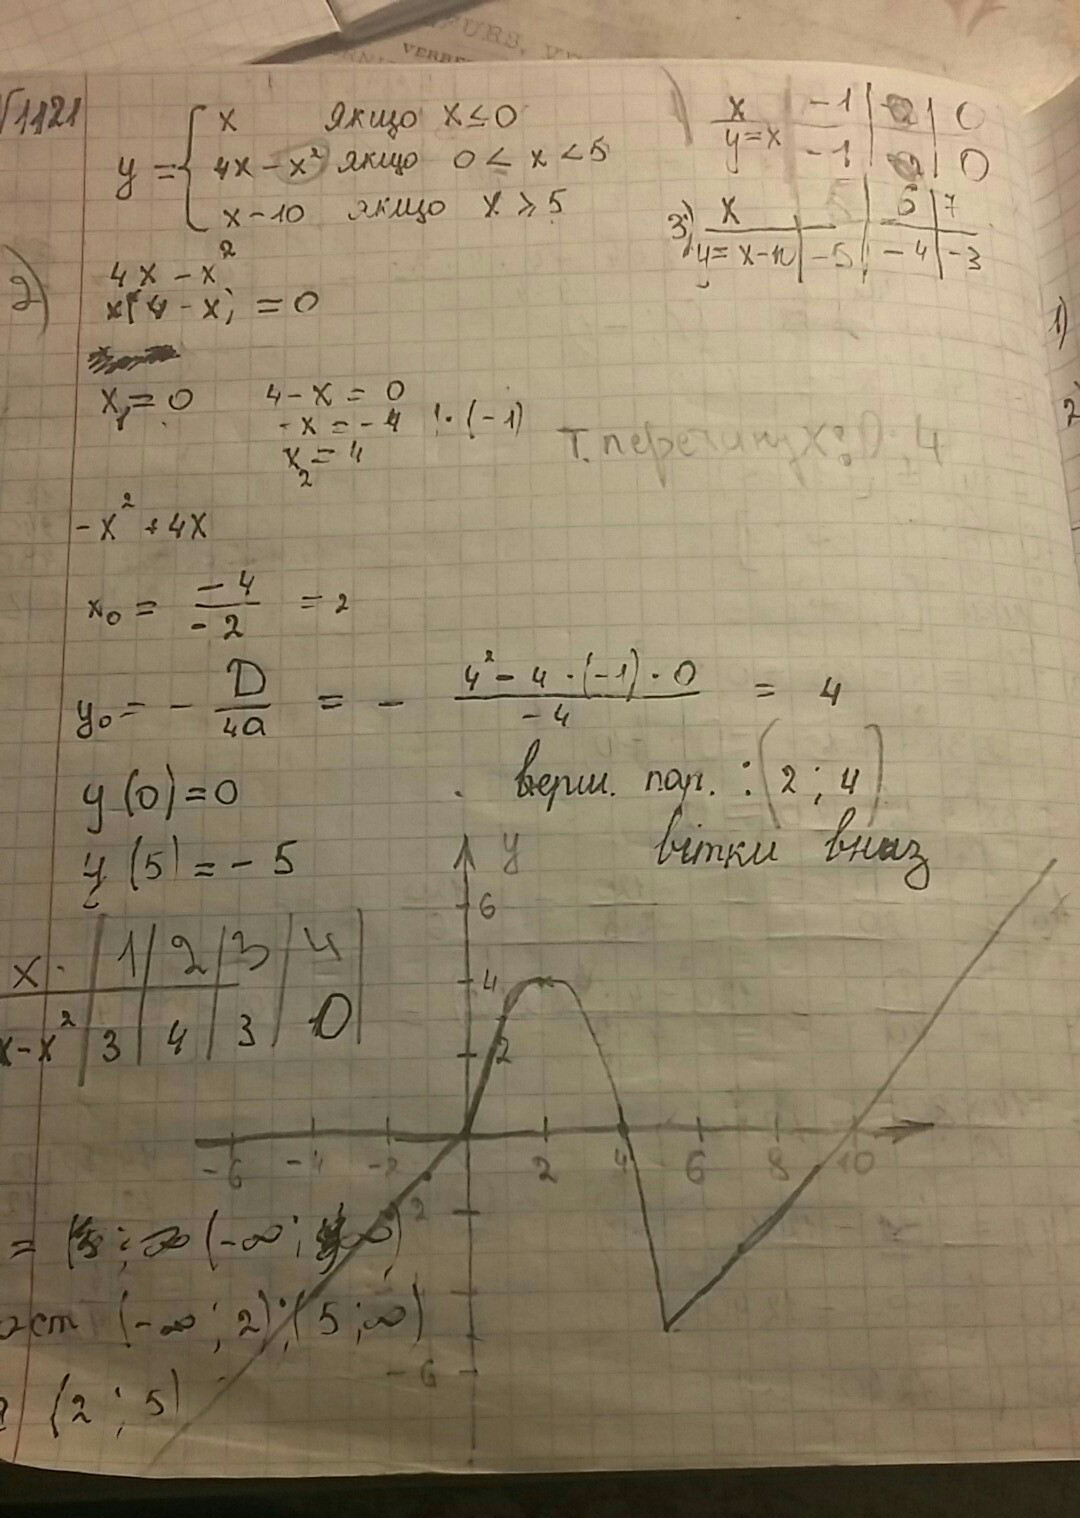 №1121
y = { x якщо x ≤ 0
4x - x² якщо 0 ≤ x < 5
x - 10 якщо x ≥ 5
1) x | -1 | | 0
y = x | -1 | | 0
3) x | 5 | 6 | 7
y = x - 10 | -5 | -4 | -3
2) 4x - x²
x(4 - x) = 0
x₁ = 0 4 - x = 0
-x = -4 | · (-1)
x₂ = 4
т. перетину x: 0; 4
-x² + 4x
x₀ = -4 / -2 = 2
y₀ = - D / 4a = - 4² - 4 · (-1) · 0 / -4 = 4
y(0) = 0
верш. пар. : (2 ; 4)
y(5) = -5
вітки вниз
x | 1 | 2 | 3 | 4
x - x² | 3 | 4 | 3 | 0
y
6
4
2
-6 -4 -2 2 4 6 8 10
2
= (-∞; ∞)
аст (-∞; 2); (5; ∞)
-6
(2; 5)
1)
2)